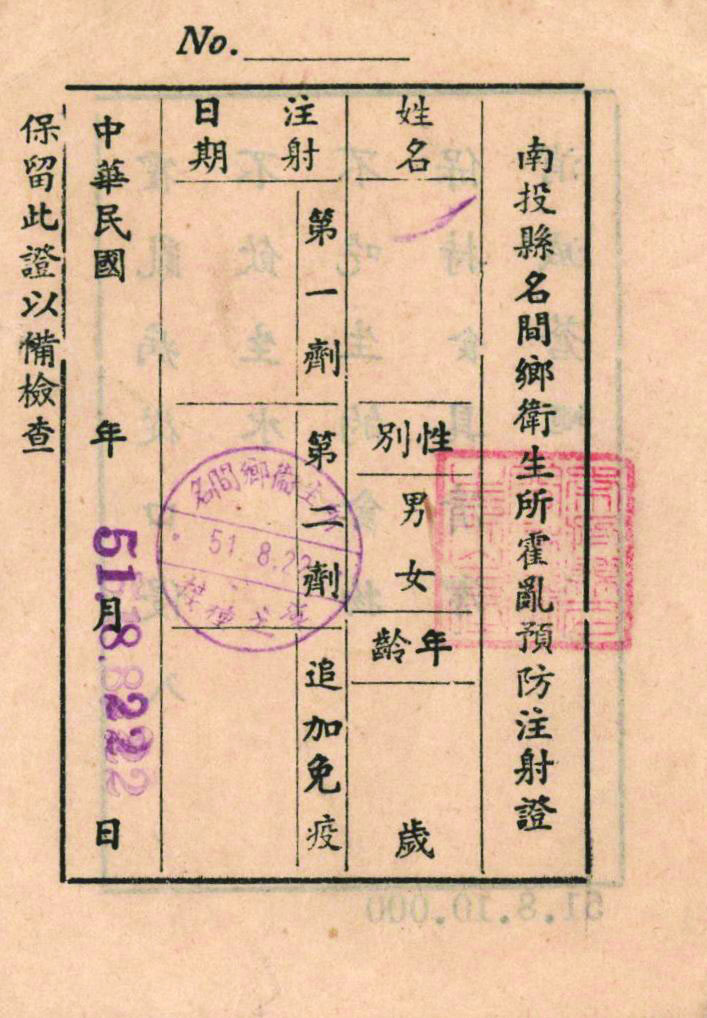 No.
南投縣名間鄉衛生所霍亂預防注射證
姓名
性別
男
女
年齡
歲
注射日期
第一劑
第二劑
追加免疫
名間鄉衛生
51.8.22
中華民國 年 月 日
51.8.222
保留此證以備檢查
51.8.10.000